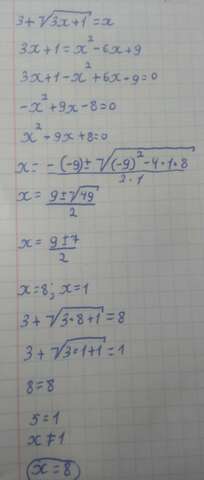 3+√3x+1=x
3x+1=x²-6x+9
3x+1-x²+6x-9=0
-x²+9x-8=0
x²-9x+8=0
x=-(-9)±√(-9)²-4·1·8/2·1
x=9±√49/2
x=9±7/2
x=8; x=1
3+√3·8+1=8
3+√3·1+1=1
8=8
5=1
x≠1
x=8